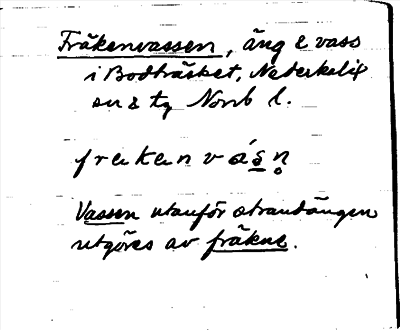 Fräkenvassen, äng & vass
i Bodträsket, Nederkalix
sn & tg Norrb l.
frakanvás̲n̥
Vassen utanför strandängen
utgöres av fräkne.